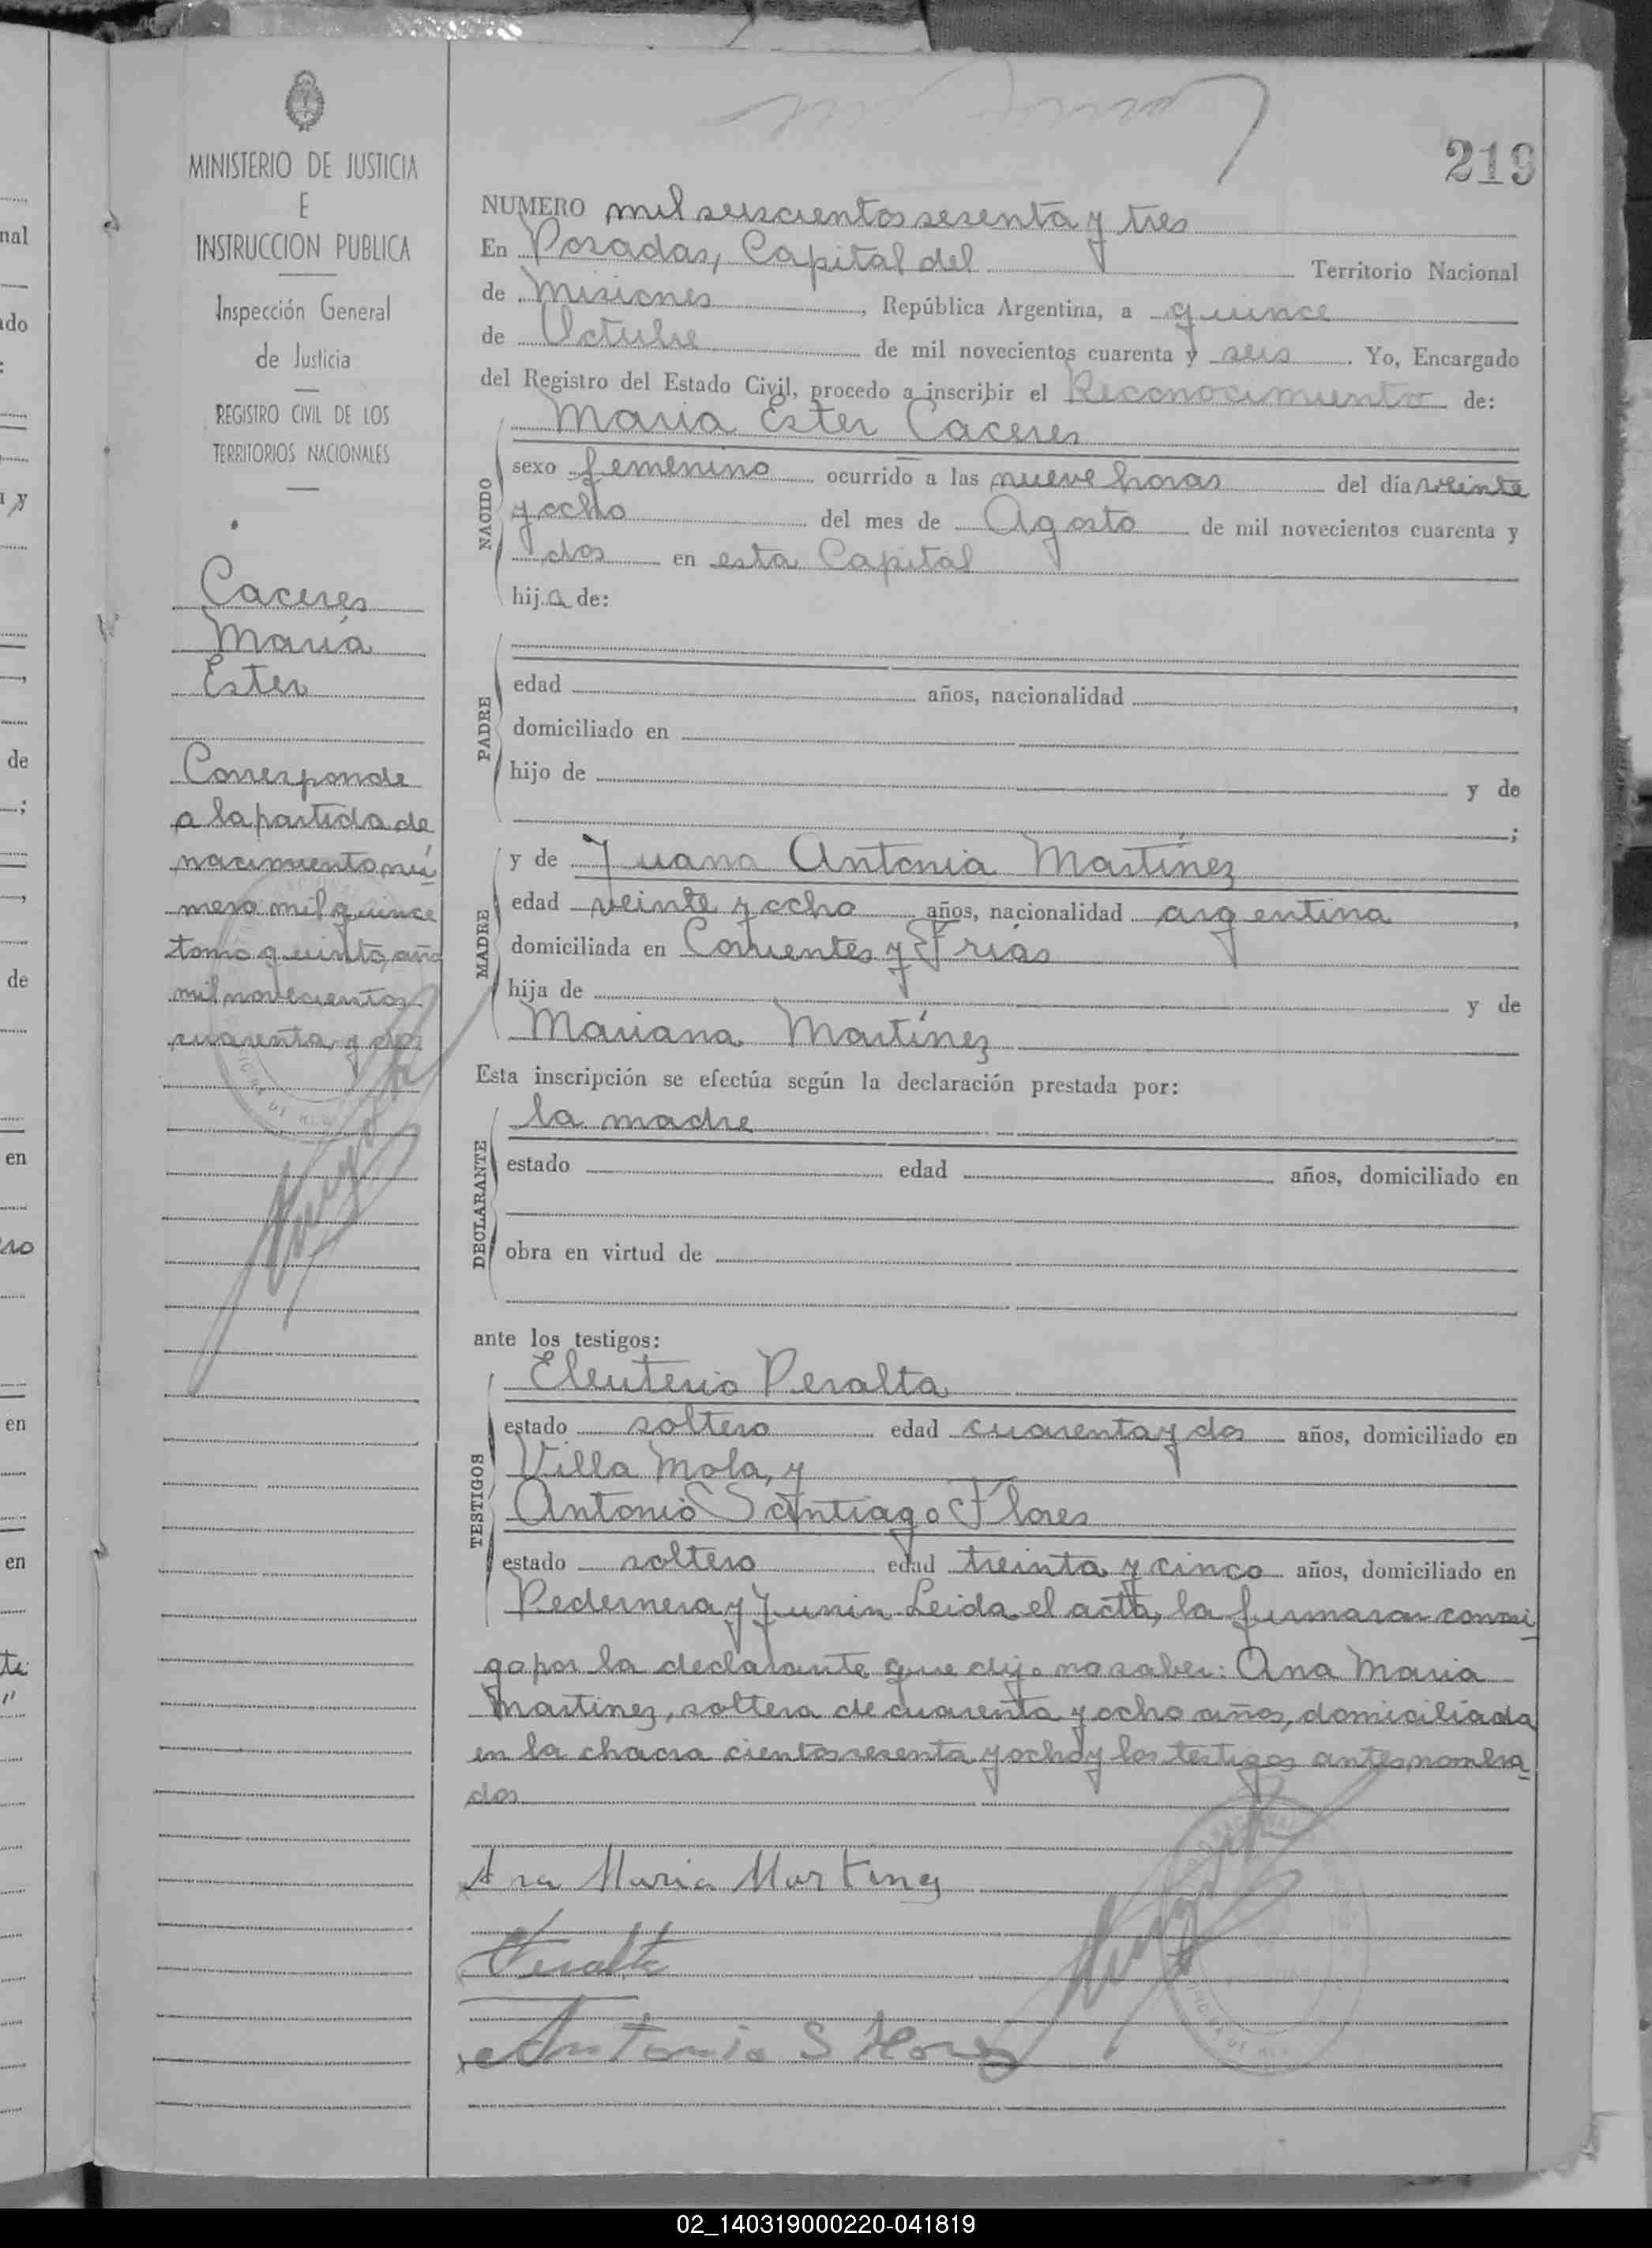 219
MINISTERIO DE JUSTICIA
E
INSTRUCCION PUBLICA
Inspección General
de Justicia
REGISTRO CIVIL DE LOS
TERRITORIOS NACIONALES
Caceres
María
Ester
Corresponde
a la partida de
nacimiento nú-
mero mil quince
tomo quinto, año
mil novecientos
cuarenta y dos
NUMERO mil seiscientos sesenta y tres
En Posadas, Capital del Territorio Nacional
de Misiones, República Argentina, a quince
de Octubre de mil novecientos cuarenta y seis. Yo, Encargado
del Registro del Estado Civil, procedo a inscribir el Reconocimiento de:
Maria Ester Caceres
NACIDO
sexo femenino ocurrido a las nueve horas del día veinte
y ocho del mes de Agosto de mil novecientos cuarenta y
dos en esta Capital
hija de:
PADRE
edad años, nacionalidad ,
domiciliado en
hijo de y de
;
MADRE
y de Juana Antonia Martínez
edad veinte y ocho años, nacionalidad argentina,
domiciliada en Corrientes y Frías
hija de y de
Mariana Martínez
Esta inscripción se efectúa según la declaración prestada por:
DECLARANTE
la madre
estado edad años, domiciliado en
obra en virtud de
ante los testigos:
TESTIGOS
Eleuterio Peralta
estado soltero edad cuarenta y dos años, domiciliado en
Villa Mola, y
Antonio Santiago Flores
estado soltero edad treinta y cinco años, domiciliado en
Pedernera y Junin Leida el acta, la firmaron conmi-
go por la declarante que dijo no saber: Ana Maria
Martinez, soltera de cuarenta y ocho años, domiciliada
en la chacra ciento sesenta y ocho y los testigos antes nombra-
dos
Ana Maria Martinez
Peralta
Antonio S Flores
02_140319000220-041819